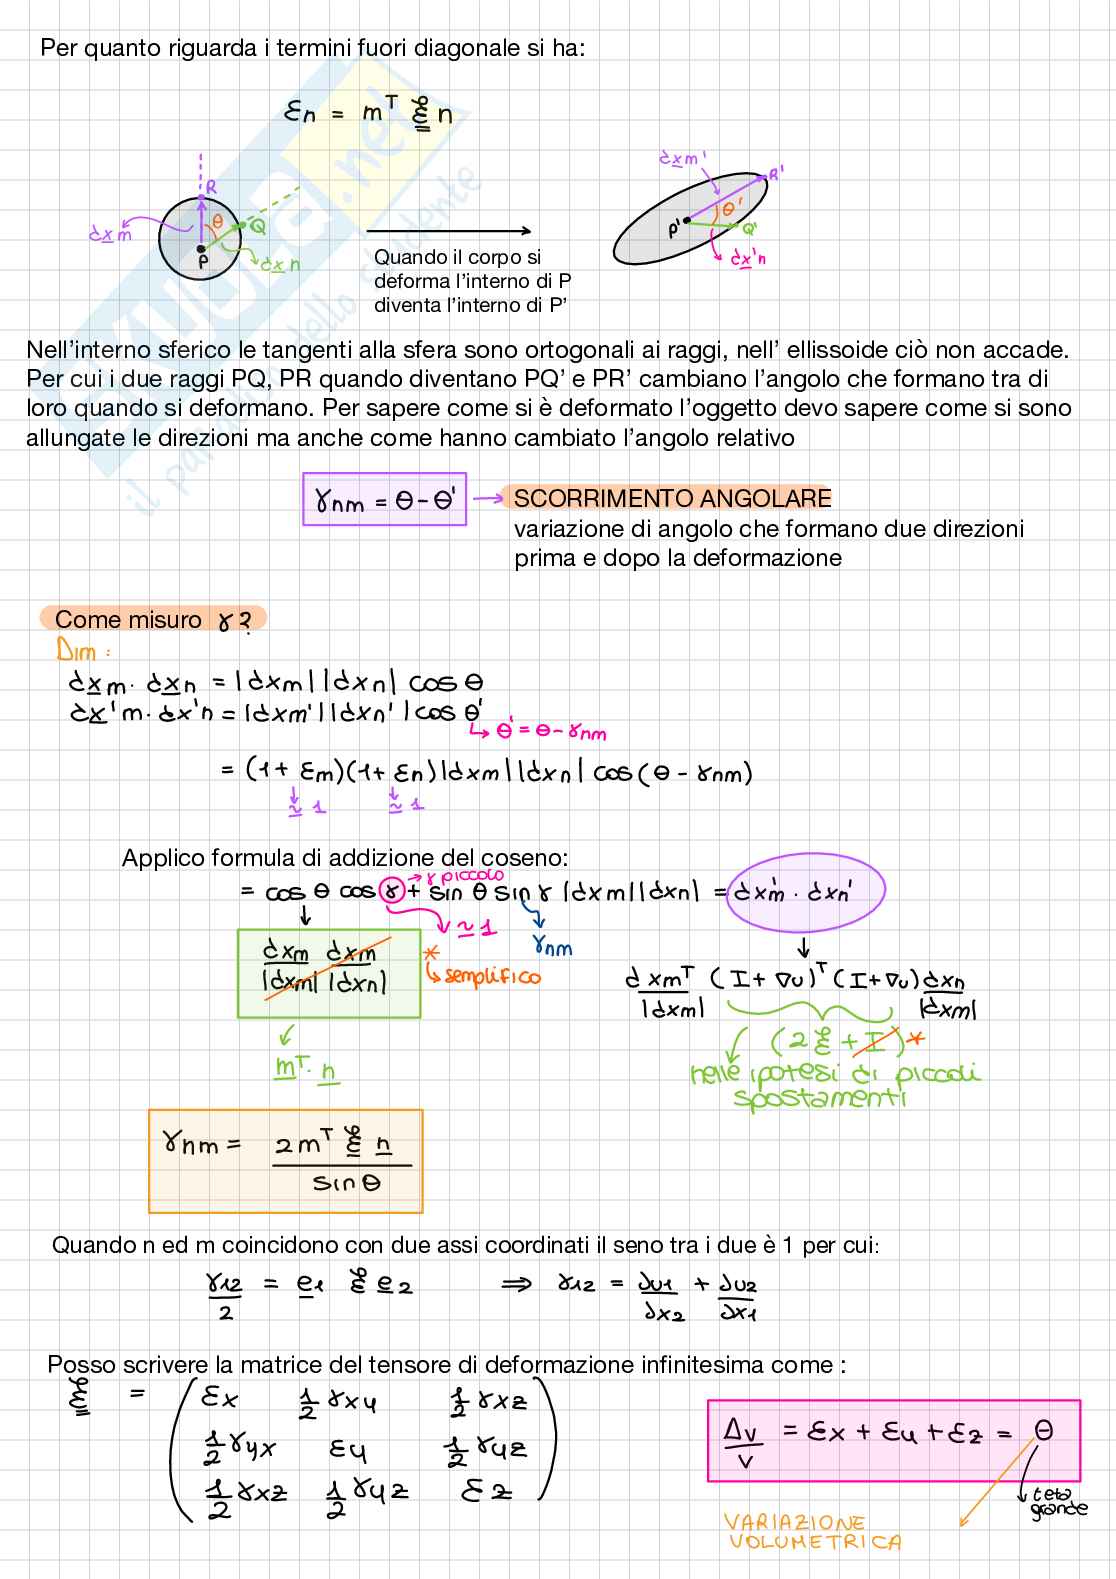 Per quanto riguarda i termini fuori diagonale si ha:
εn = m^T ξ n
dxm R θ Q P dxn
dxm' R' θ' P' Q' dx'n
Quando il corpo si
deforma l'interno di P
diventa l'interno di P'
Nell'interno sferico le tangenti alla sfera sono ortogonali ai raggi, nell' ellissoide ciò non accade.
Per cui i due raggi PQ, PR quando diventano PQ' e PR' cambiano l'angolo che formano tra di
loro quando si deformano. Per sapere come si è deformato l'oggetto devo sapere come si sono
allungate le direzioni ma anche come hanno cambiato l'angolo relativo
γnm = θ-θ' → SCORRIMENTO ANGOLARE
variazione di angolo che formano due direzioni
prima e dopo la deformazione
Come misuro γ?
Dim:
dxm · dxn = |dxm||dxn| cos θ
dx'm · dx'n = |dxm'||dxn'| cos θ'
↳ θ' = θ - γnm
= (1+ εm)(1+ εn)|dxm||dxn| cos(θ - γnm)
≃ 1 ≃ 1
Applico formula di addizione del coseno:
→ γ piccolo
= cos θ cos γ + sin θ sin γ |dxm||dxn| = dxm' · dxn'
≃ 1 γnm
dxm/|dxm| dxm/|dxn| * semplifico
dxm^T/|dxm| (I+ ∇u)^T (I+∇u) dxn/|dxm|
(2ξ + I)*
m^T · n
nelle ipotesi di piccoli
spostamenti
γnm = 2m^T ξ n / sin θ
Quando n ed m coincidono con due assi coordinati il seno tra i due è 1 per cui:
γ12/2 = e1 ξ e2 ⇒ γ12 = ∂u1/∂x2 + ∂u2/∂x1
Posso scrivere la matrice del tensore di deformazione infinitesima come :
ξ = ( εx 1/2 γxy 1/2 γxz
1/2 γyx εy 1/2 γyz
1/2 γxz 1/2 γyz εz )
Δv/v = εx + εy + εz = θ
teta
grande
VARIAZIONE
VOLUMETRICA
skuola.net